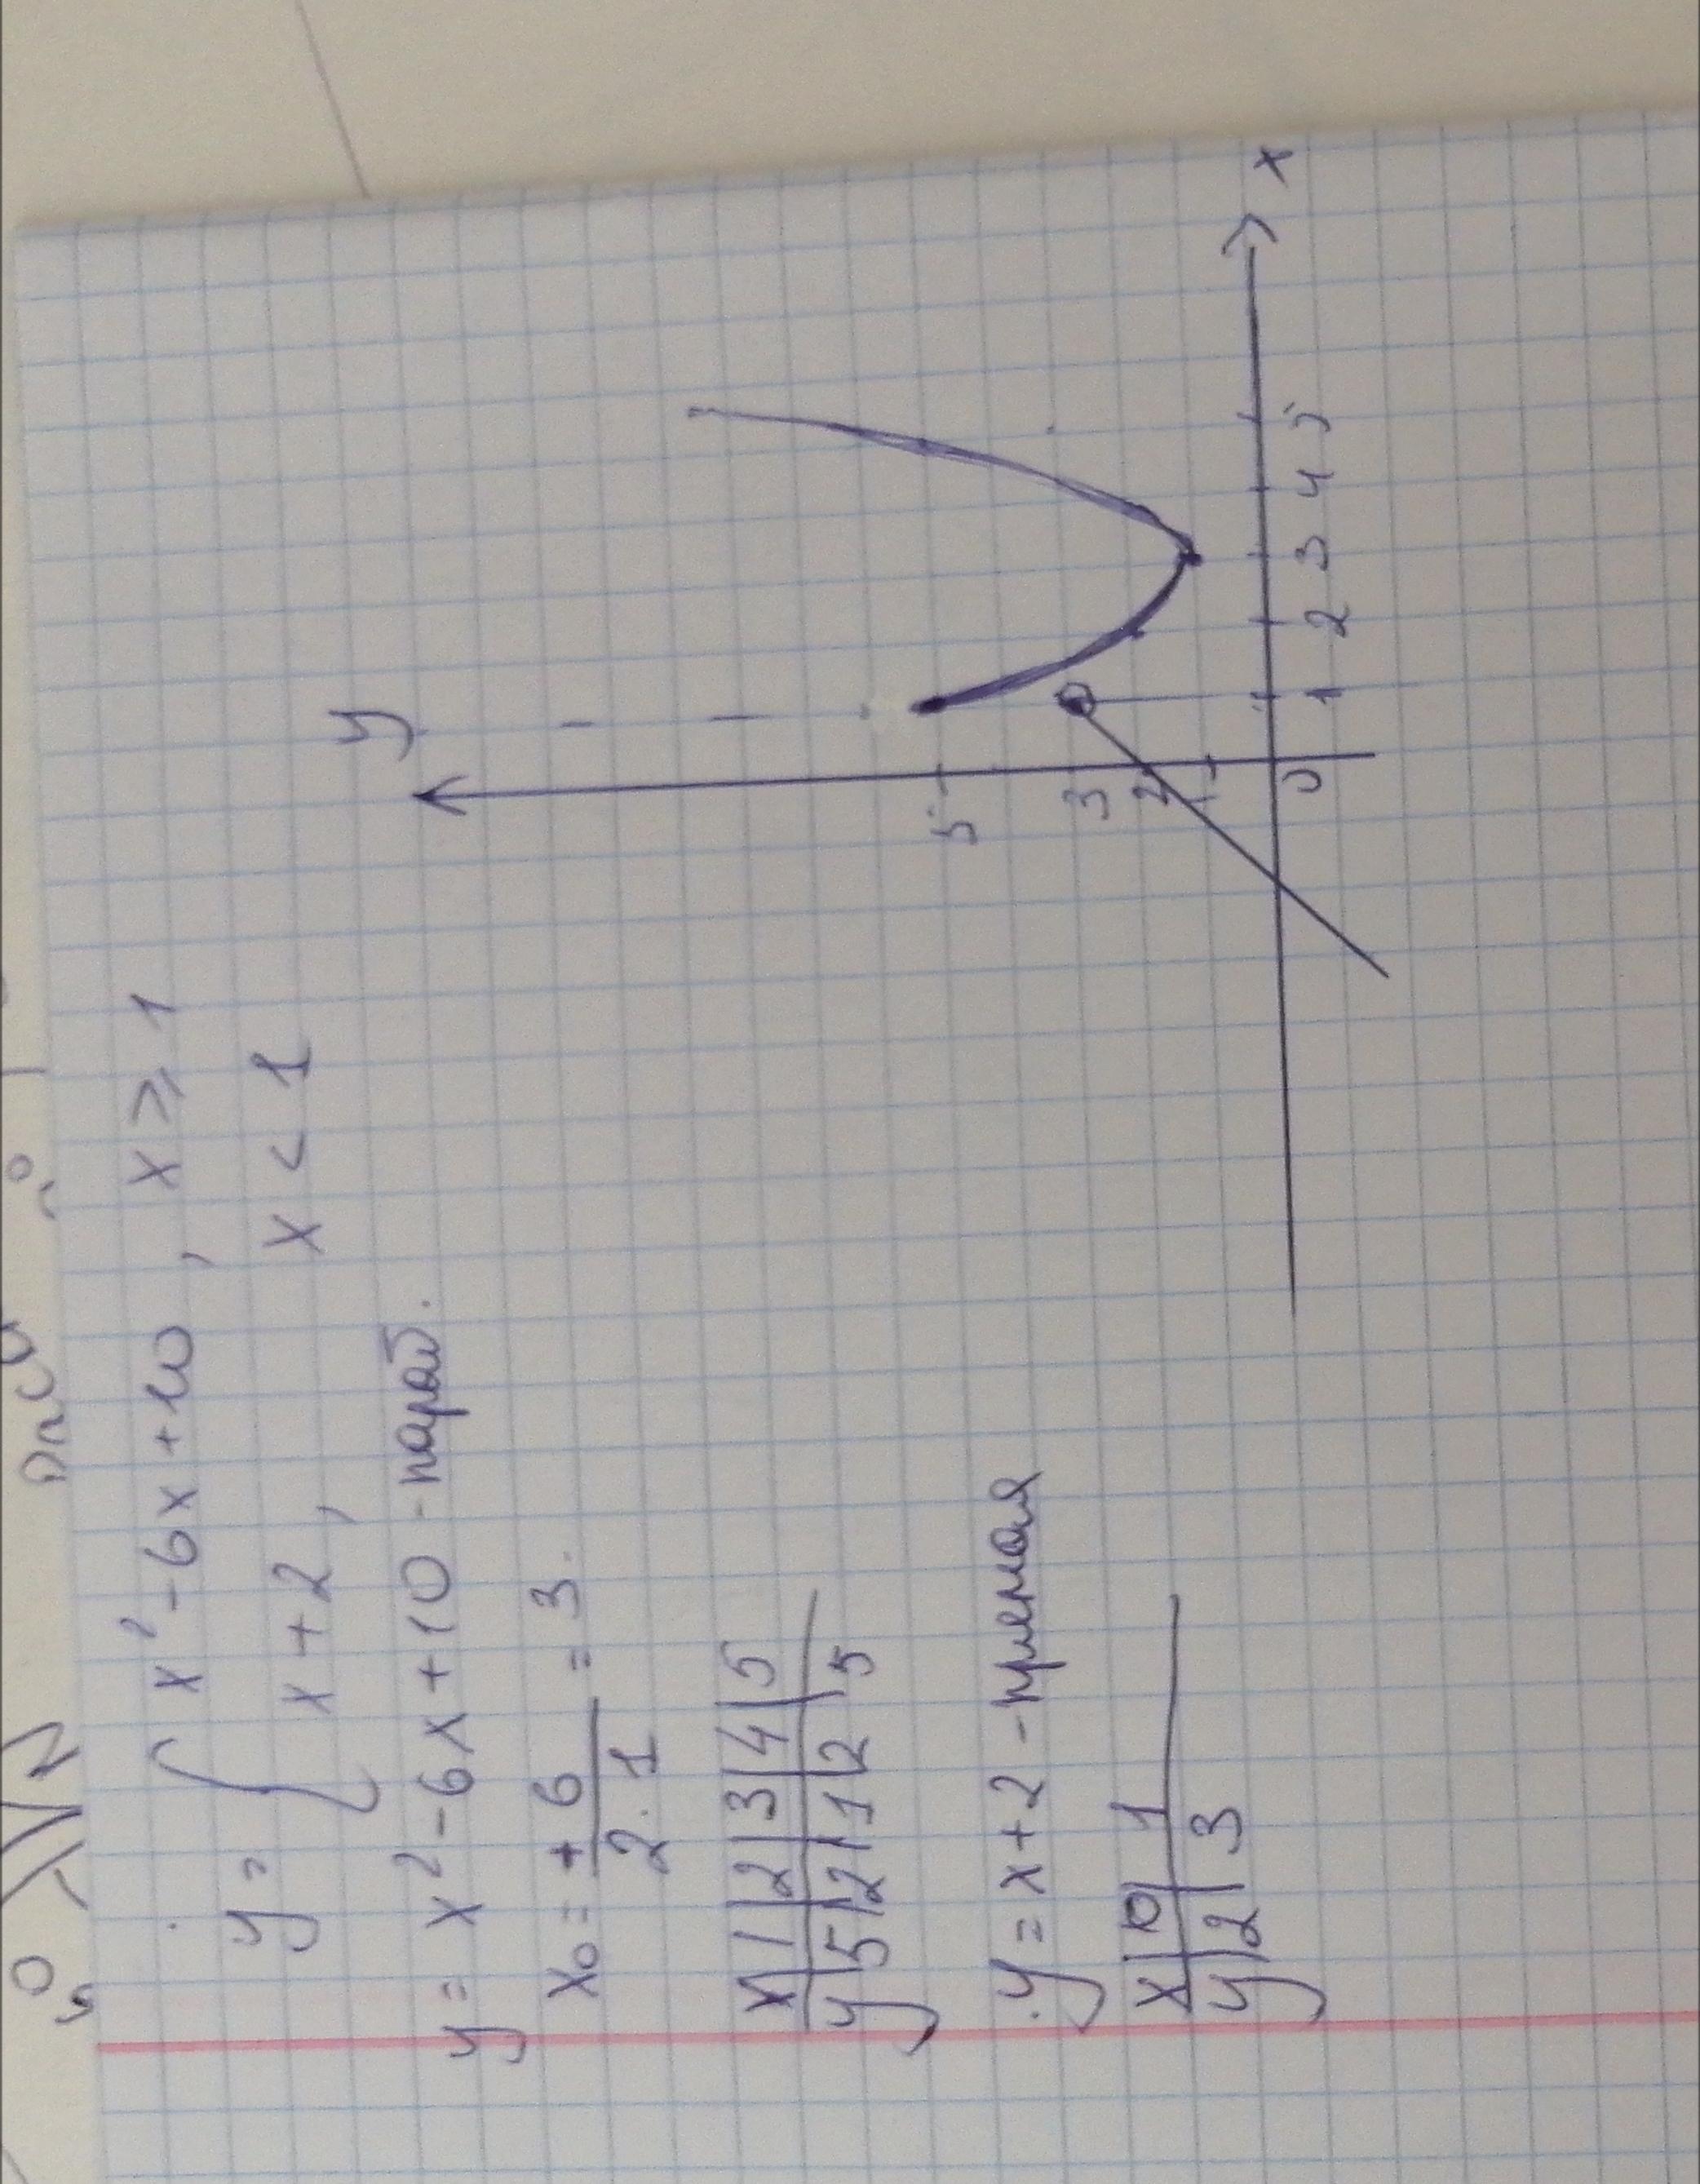 y = { x² - 6x + 10 , x ⩾ 1
x + 2 , x < 1
y = x² - 6x + 10 - параб.
x₀ = +6/2·1 = 3.
x | 1 | 2 | 3 | 4 | 5
y | 5 | 2 | 1 | 2 | 5
y = x + 2 - прямая
x | 0 | 1
y | 2 | 3
y
5
3
2
1
0 1 2 3 4 5 x